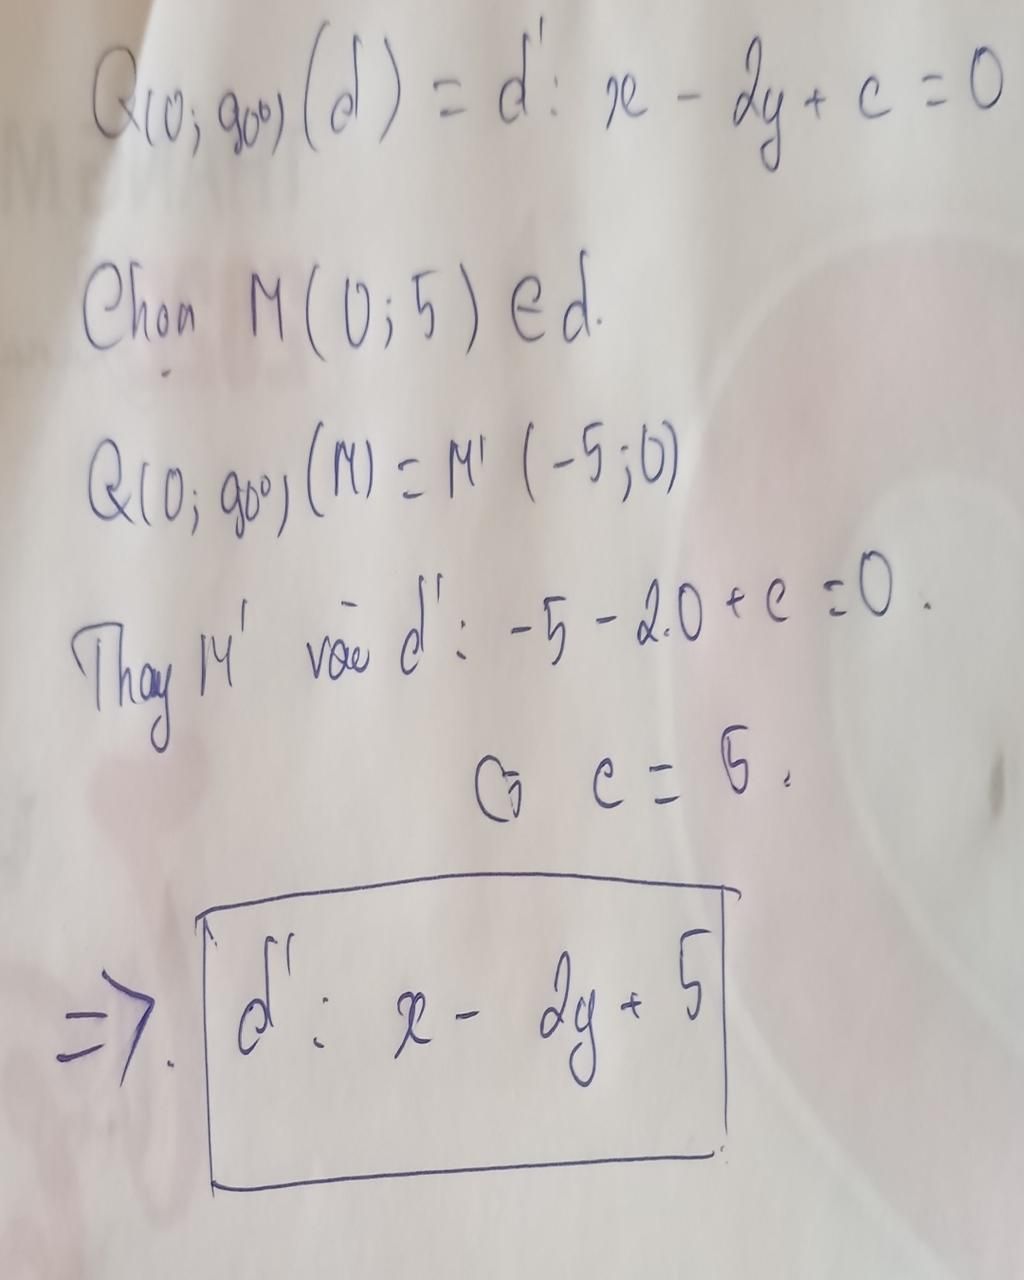 Q(O; 90°) (d) = d': x - 2y + c = 0
Chọn M(0; 5) ∈ d.
Q(O; 90°) (M) = M' (-5; 0)
Thay M' vào d': -5 - 2.0 + c = 0.
c = 5.
=>. d': x - 2y + 5